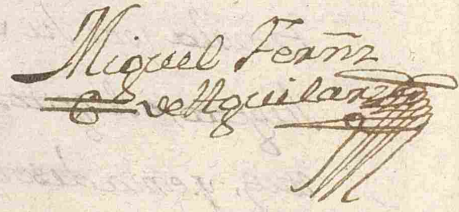 Miguel Ferñz
de Aguilar